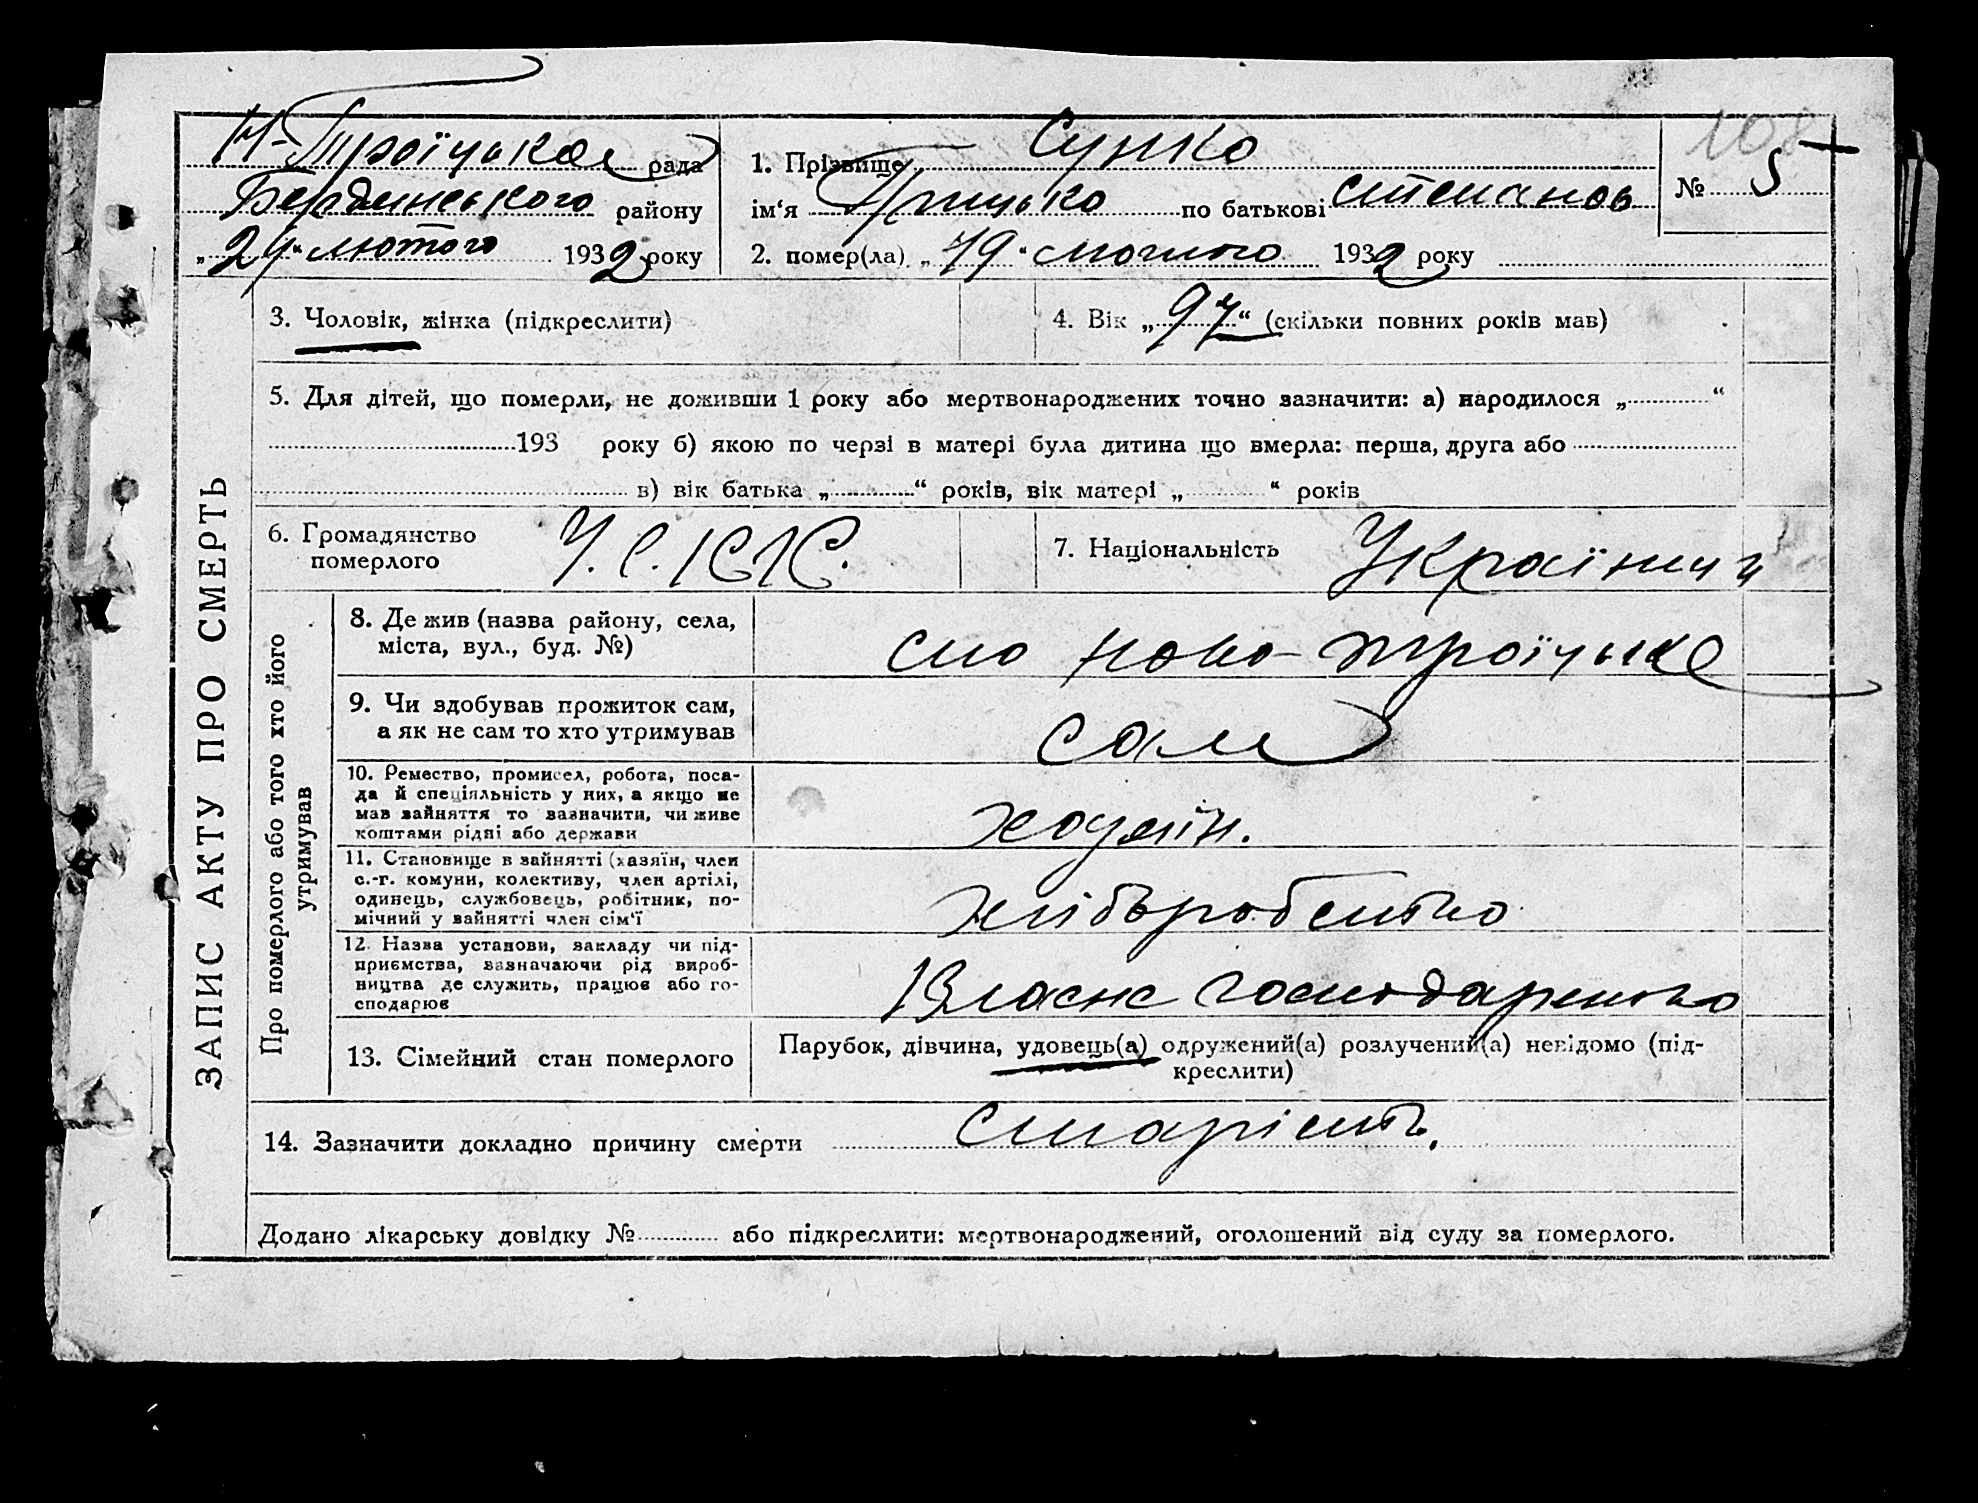 108
Н-Троїцька рада
Бердянського району
„24“ лютого 1932 року
1. Прізвище Супко
ім‘я Грицько по батькові Степанов
№ 5
2. помер(ла) „19“ лютого 1932 року
ЗАПИС АКТУ ПРО СМЕРТЬ
3. Чоловік, жінка (підкреслити)
4. Вік „97“ (скільки повних років мав)
5. Для дітей, що померли, не доживши 1 року або мертвонароджених точно зазначити: а) народилося „ “
193 року б) якою по черзі в матері була дитина що вмерла: перша, друга або
в) вік батька „ “ років, вік матері „ “ років
6. Громадянство
померлого
У.С.
7. Національність Українец
Про померлого або того хто його
утримував
8. Де жив (назва району, села,
міста, вул., буд. №)
село Ново-Троїцьке
9. Чи здобував прожиток сам,
а як не сам то хто утримував
сам
10. Ремество, промисел, робота, поса-
да й спеціяльність у них, а якщо не
мав зайняття то зазначити, чи живе
коштами рідні або держави
хазяїн.
11. Становище в зайнятті (хазяїн, член
с.-г. комуни, колективу, член артілі,
одинець, службовець, робітник, по-
мічний у зайнятті член сім‘ї
хліборобство
12. Назва установи, закладу чи під-
приємства, зазначаючи рід вироб-
ництва де служить, працює або го-
сподарює
Власне господарство
13. Сімейний стан померлого
Парубок, дівчина, удовець(а) одружений(а) розлучений(а) невідомо (під-
креслити)
14. Зазначити докладно причину смерти старість.
Додано лікарську довідку № або підкреслити: мертвонароджений, оголошений від суду за померлого.